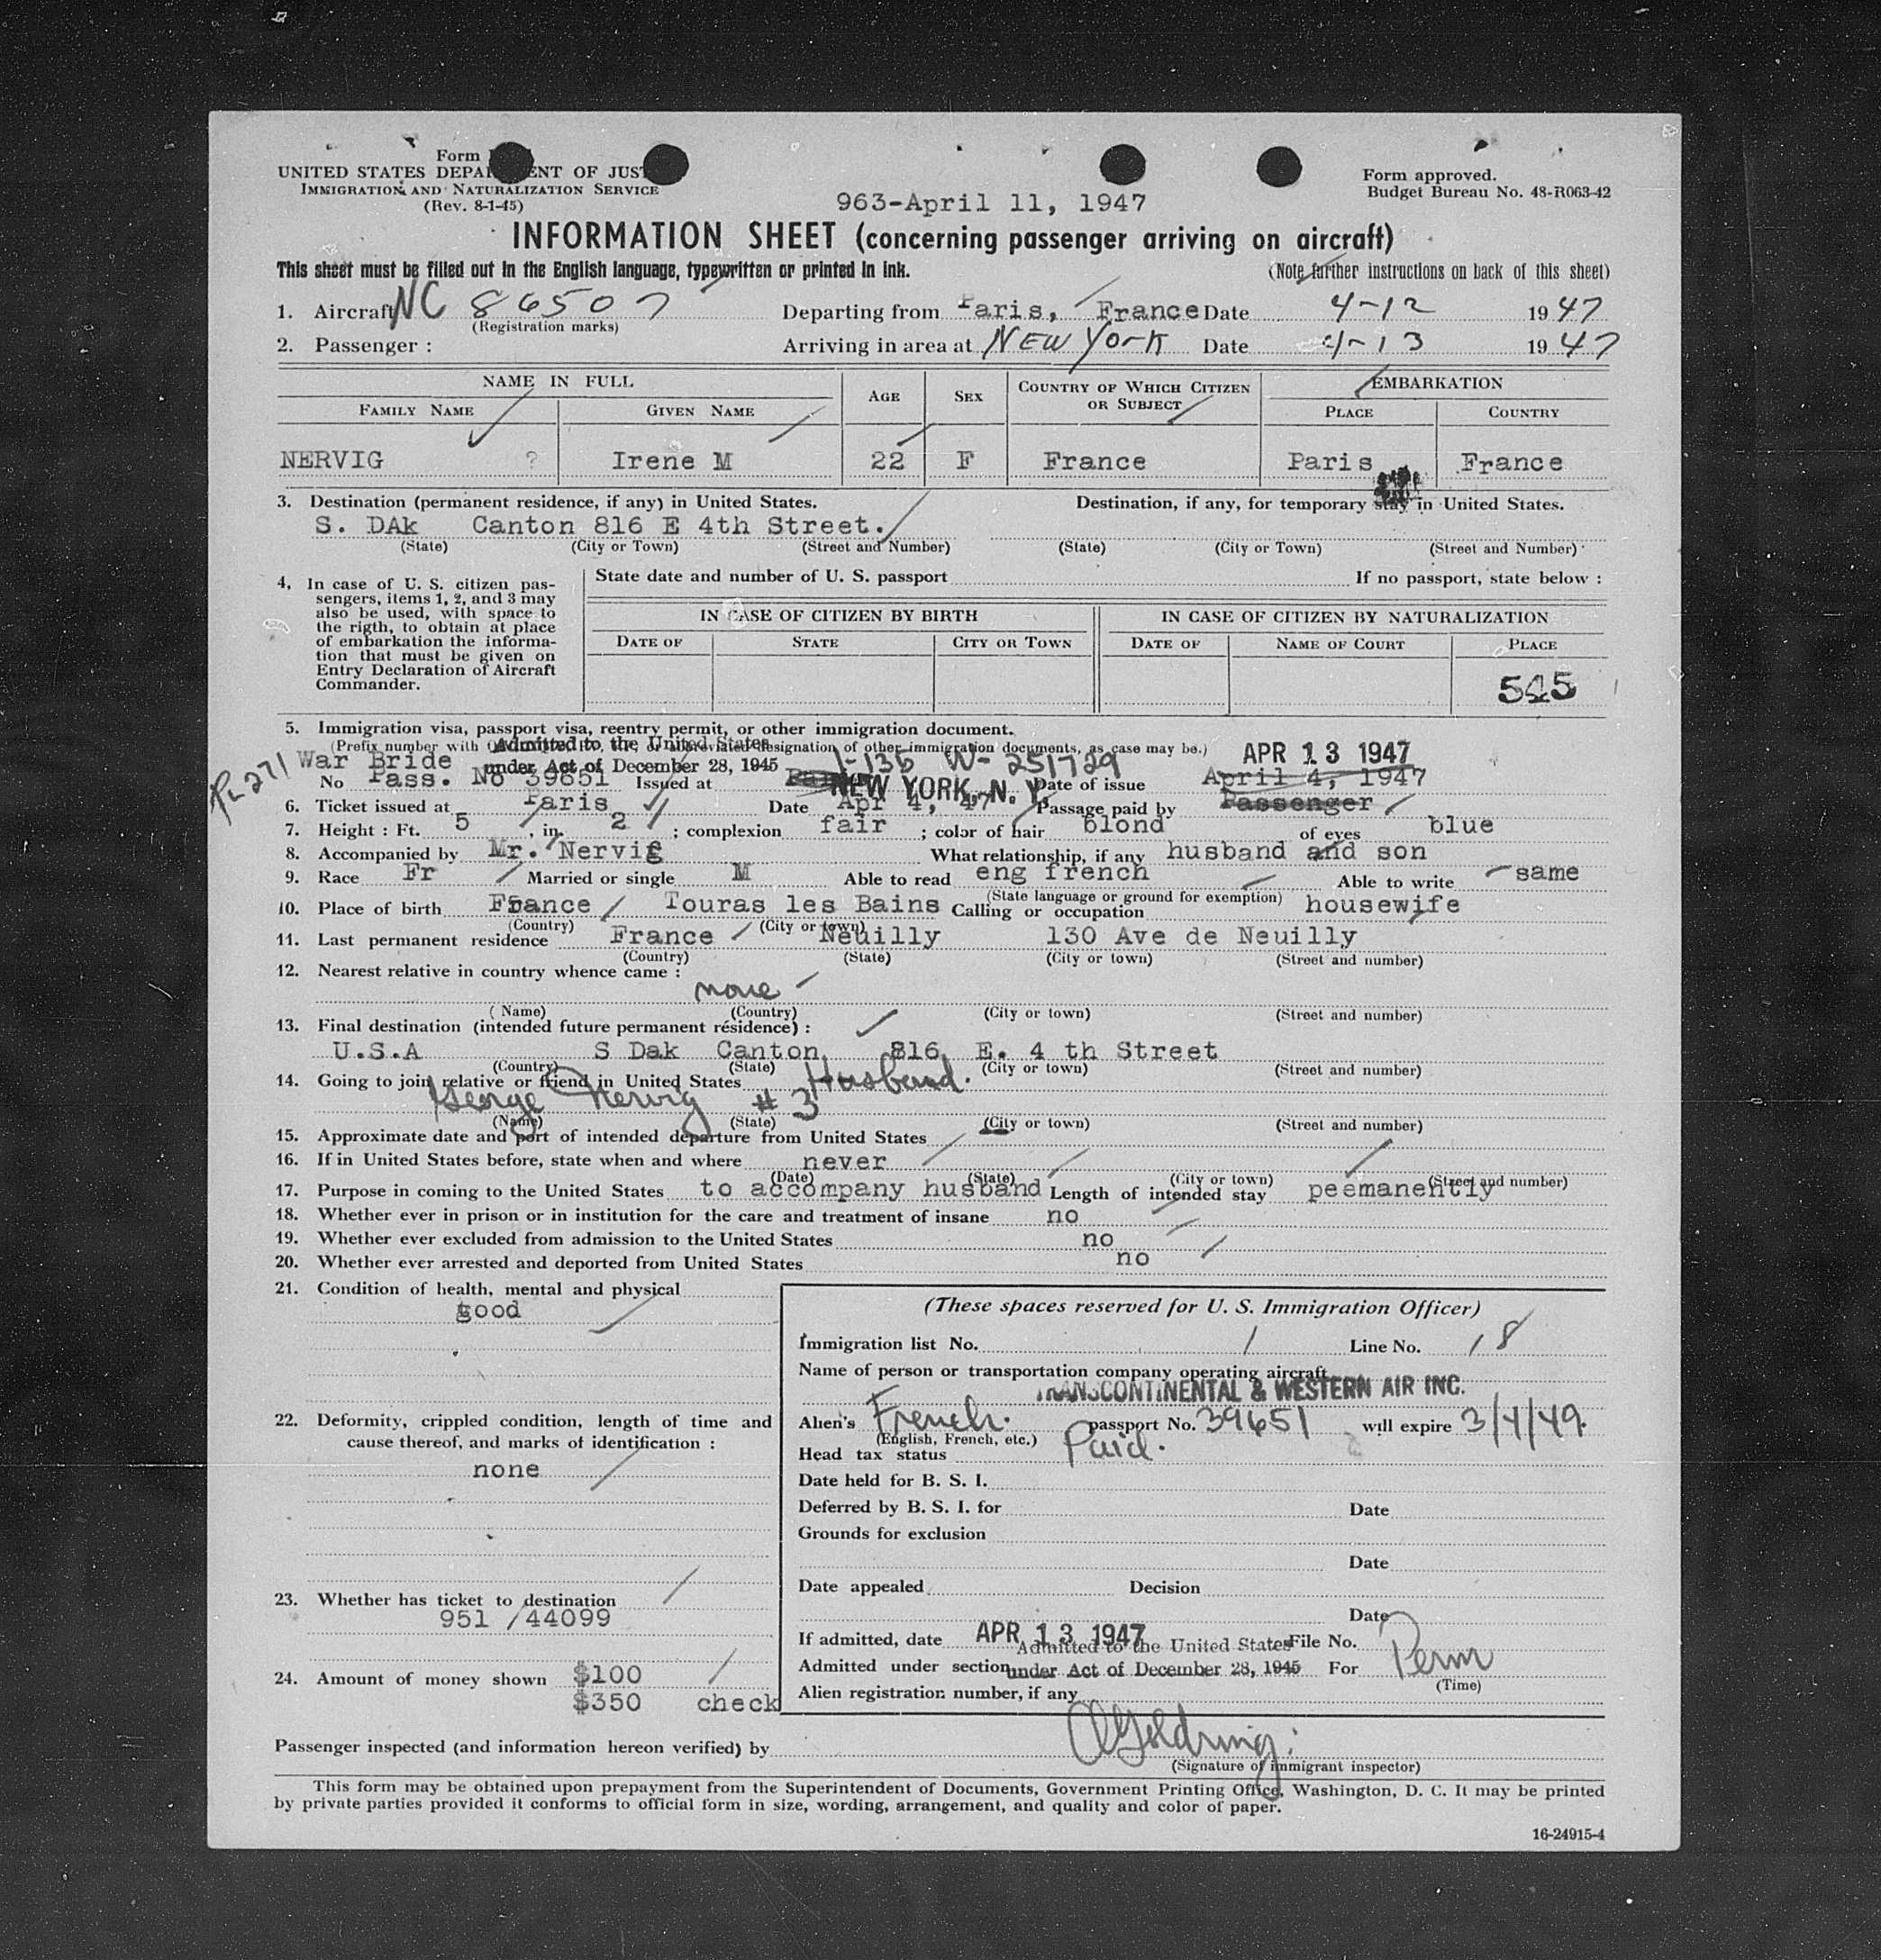 Form
UNITED STATES DEPA ENT OF JUS
IMMIGRATION AND NATURALIZATION SERVICE
(Rev. 8-1-45)
Form approved.
Budget Bureau No. 48-R063-42
963-April 11, 1947
INFORMATION SHEET (concerning passenger arriving on aircraft)
This sheet must be filled out in the English language, typewritten or printed in ink. (Note further instructions on back of this sheet)
1. Aircraft NC 86507 Departing from Paris, France Date 4-12 1947
(Registration marks)
2. Passenger : Arriving in area at NEW YORK Date 4-13 1947
NAME IN FULL AGE SEX COUNTRY OF WHICH CITIZEN OR SUBJECT EMBARKATION
FAMILY NAME GIVEN NAME PLACE COUNTRY
NERVIG ? Irene M 22 F France Paris France
3. Destination (permanent residence, if any) in United States. Destination, if any, for temporary stay in United States.
S. DAk Canton 816 E 4th Street.
(State) (City or Town) (Street and Number) (State) (City or Town) (Street and Number)
4. In case of U. S. citizen pas-
sengers, items 1, 2, and 3 may
also be used, with space to
the rigth, to obtain at place
of embarkation the informa-
tion that must be given on
Entry Declaration of Aircraft
Commander.
State date and number of U. S. passport If no passport, state below :
IN CASE OF CITIZEN BY BIRTH IN CASE OF CITIZEN BY NATURALIZATION
DATE OF STATE CITY OR TOWN DATE OF NAME OF COURT PLACE
545
5. Immigration visa, passport visa, reentry permit, or other immigration document.
(Prefix number with designation of other immigration documents, as case may be.)
Admitted to the United States
under Act of December 28, 1945
PL-271 War Bride I-135 W-251729 APR 13 1947
No Pass. No 39651 Issued at NEW YORK, N. Y. Date of issue April 4, 1947
6. Ticket issued at Paris Date Apr 4, 47 Passage paid by Passenger
7. Height : Ft. 5 , in. 2 ; complexion fair ; color of hair blond of eyes blue
8. Accompanied by Mr. Nervig What relationship, if any husband and son
9. Race Fr Married or single M Able to read eng french Able to write same
(State language or ground for exemption)
10. Place of birth France Touras les Bains Calling or occupation housewife
(Country) (City or town)
11. Last permanent residence France Neuilly 130 Ave de Neuilly
(Country) (State) (City or town) (Street and number)
12. Nearest relative in country whence came :
none
(Name) (Country) (City or town) (Street and number)
13. Final destination (intended future permanent résidence) :
U.S.A S Dak Canton, 816 E. 4 th Street
(Country) (State) (City or town) (Street and number)
14. Going to join relative or friend in United States Husband.
George Nervig # 3
(Name) (State) (City or town) (Street and number)
15. Approximate date and port of intended departure from United States
16. If in United States before, state when and where never
(Date) (State) (City or town) (Street and number)
17. Purpose in coming to the United States to accompany husband Length of intended stay peemanently
18. Whether ever in prison or in institution for the care and treatment of insane no
19. Whether ever excluded from admission to the United States no
20. Whether ever arrested and deported from United States no
21. Condition of health, mental and physical
good
22. Deformity, crippled condition, length of time and
cause thereof, and marks of identification :
none
23. Whether has ticket to destination
951 /44099
24. Amount of money shown $100
$350 check
(These spaces reserved for U. S. Immigration Officer)
Immigration list No. 1 Line No. 18
Name of person or transportation company operating aircraft
TRANSCONTINENTAL & WESTERN AIR INC.
Alien's French. passport No. 39651 will expire 3/4/49.
(English, French, etc.)
Head tax status Paid.
Date held for B. S. I.
Deferred by B. S. I. for Date
Grounds for exclusion
Date
Date appealed Decision
Date
If admitted, date APR 13 1947 File No.
Admitted to the United States
Admitted under section under Act of December 28, 1945 For Perm
(Time)
Alien registration number, if any
Passenger inspected (and information hereon verified) by
(Signature of immigrant inspector)
This form may be obtained upon prepayment from the Superintendent of Documents, Government Printing Office, Washington, D. C. It may be printed
by private parties provided it conforms to official form in size, wording, arrangement, and quality and color of paper.
16-24915-4